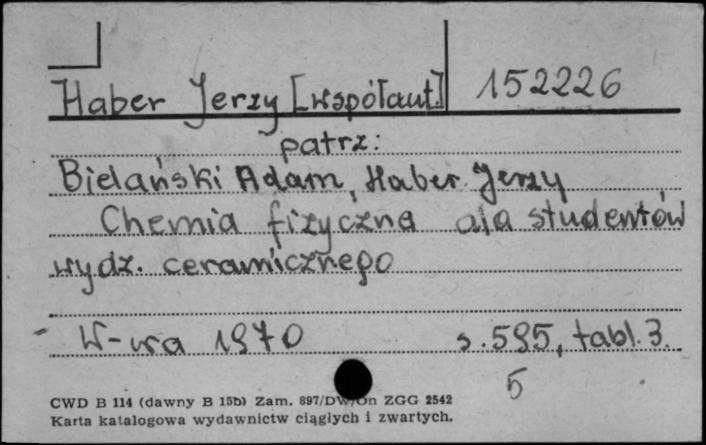 Haber Jerzy [współaut.] 152226
patrz:
Bielański Adam, Haber Jerzy
Chemia fizyczna dla studentów
wydz. ceramicznego
W-wa 1970 s. 595, tabl. 3
5
CWD B 114 (dawny B 15b) Zam. 897/DW/On ZGG 2542
Karta katalogowa wydawnictw ciągłych i zwartych.